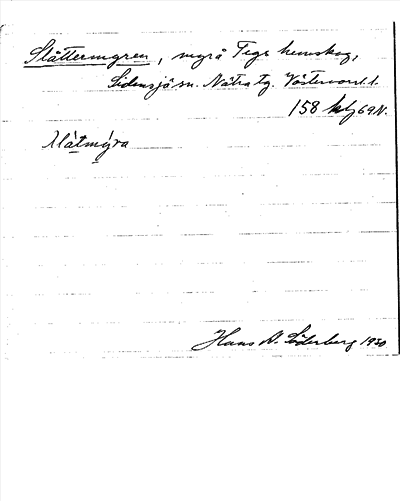 Slåttermyren, myrå Tegs hemskog,
Sidensjö sn. Nätra tg. Västernorrl.
158 69N.
Hans N. Söderberg 1930